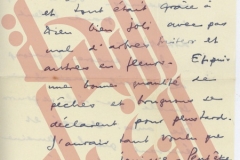 et tout était grâce à
Dieu bien joli avec pas
mal d'arbres fruitiers et
autres en fleurs. Et puis
une bonne quantité de
pêches et brugnons se
déclarent pour plus tard.
J'aurais tant voulu que